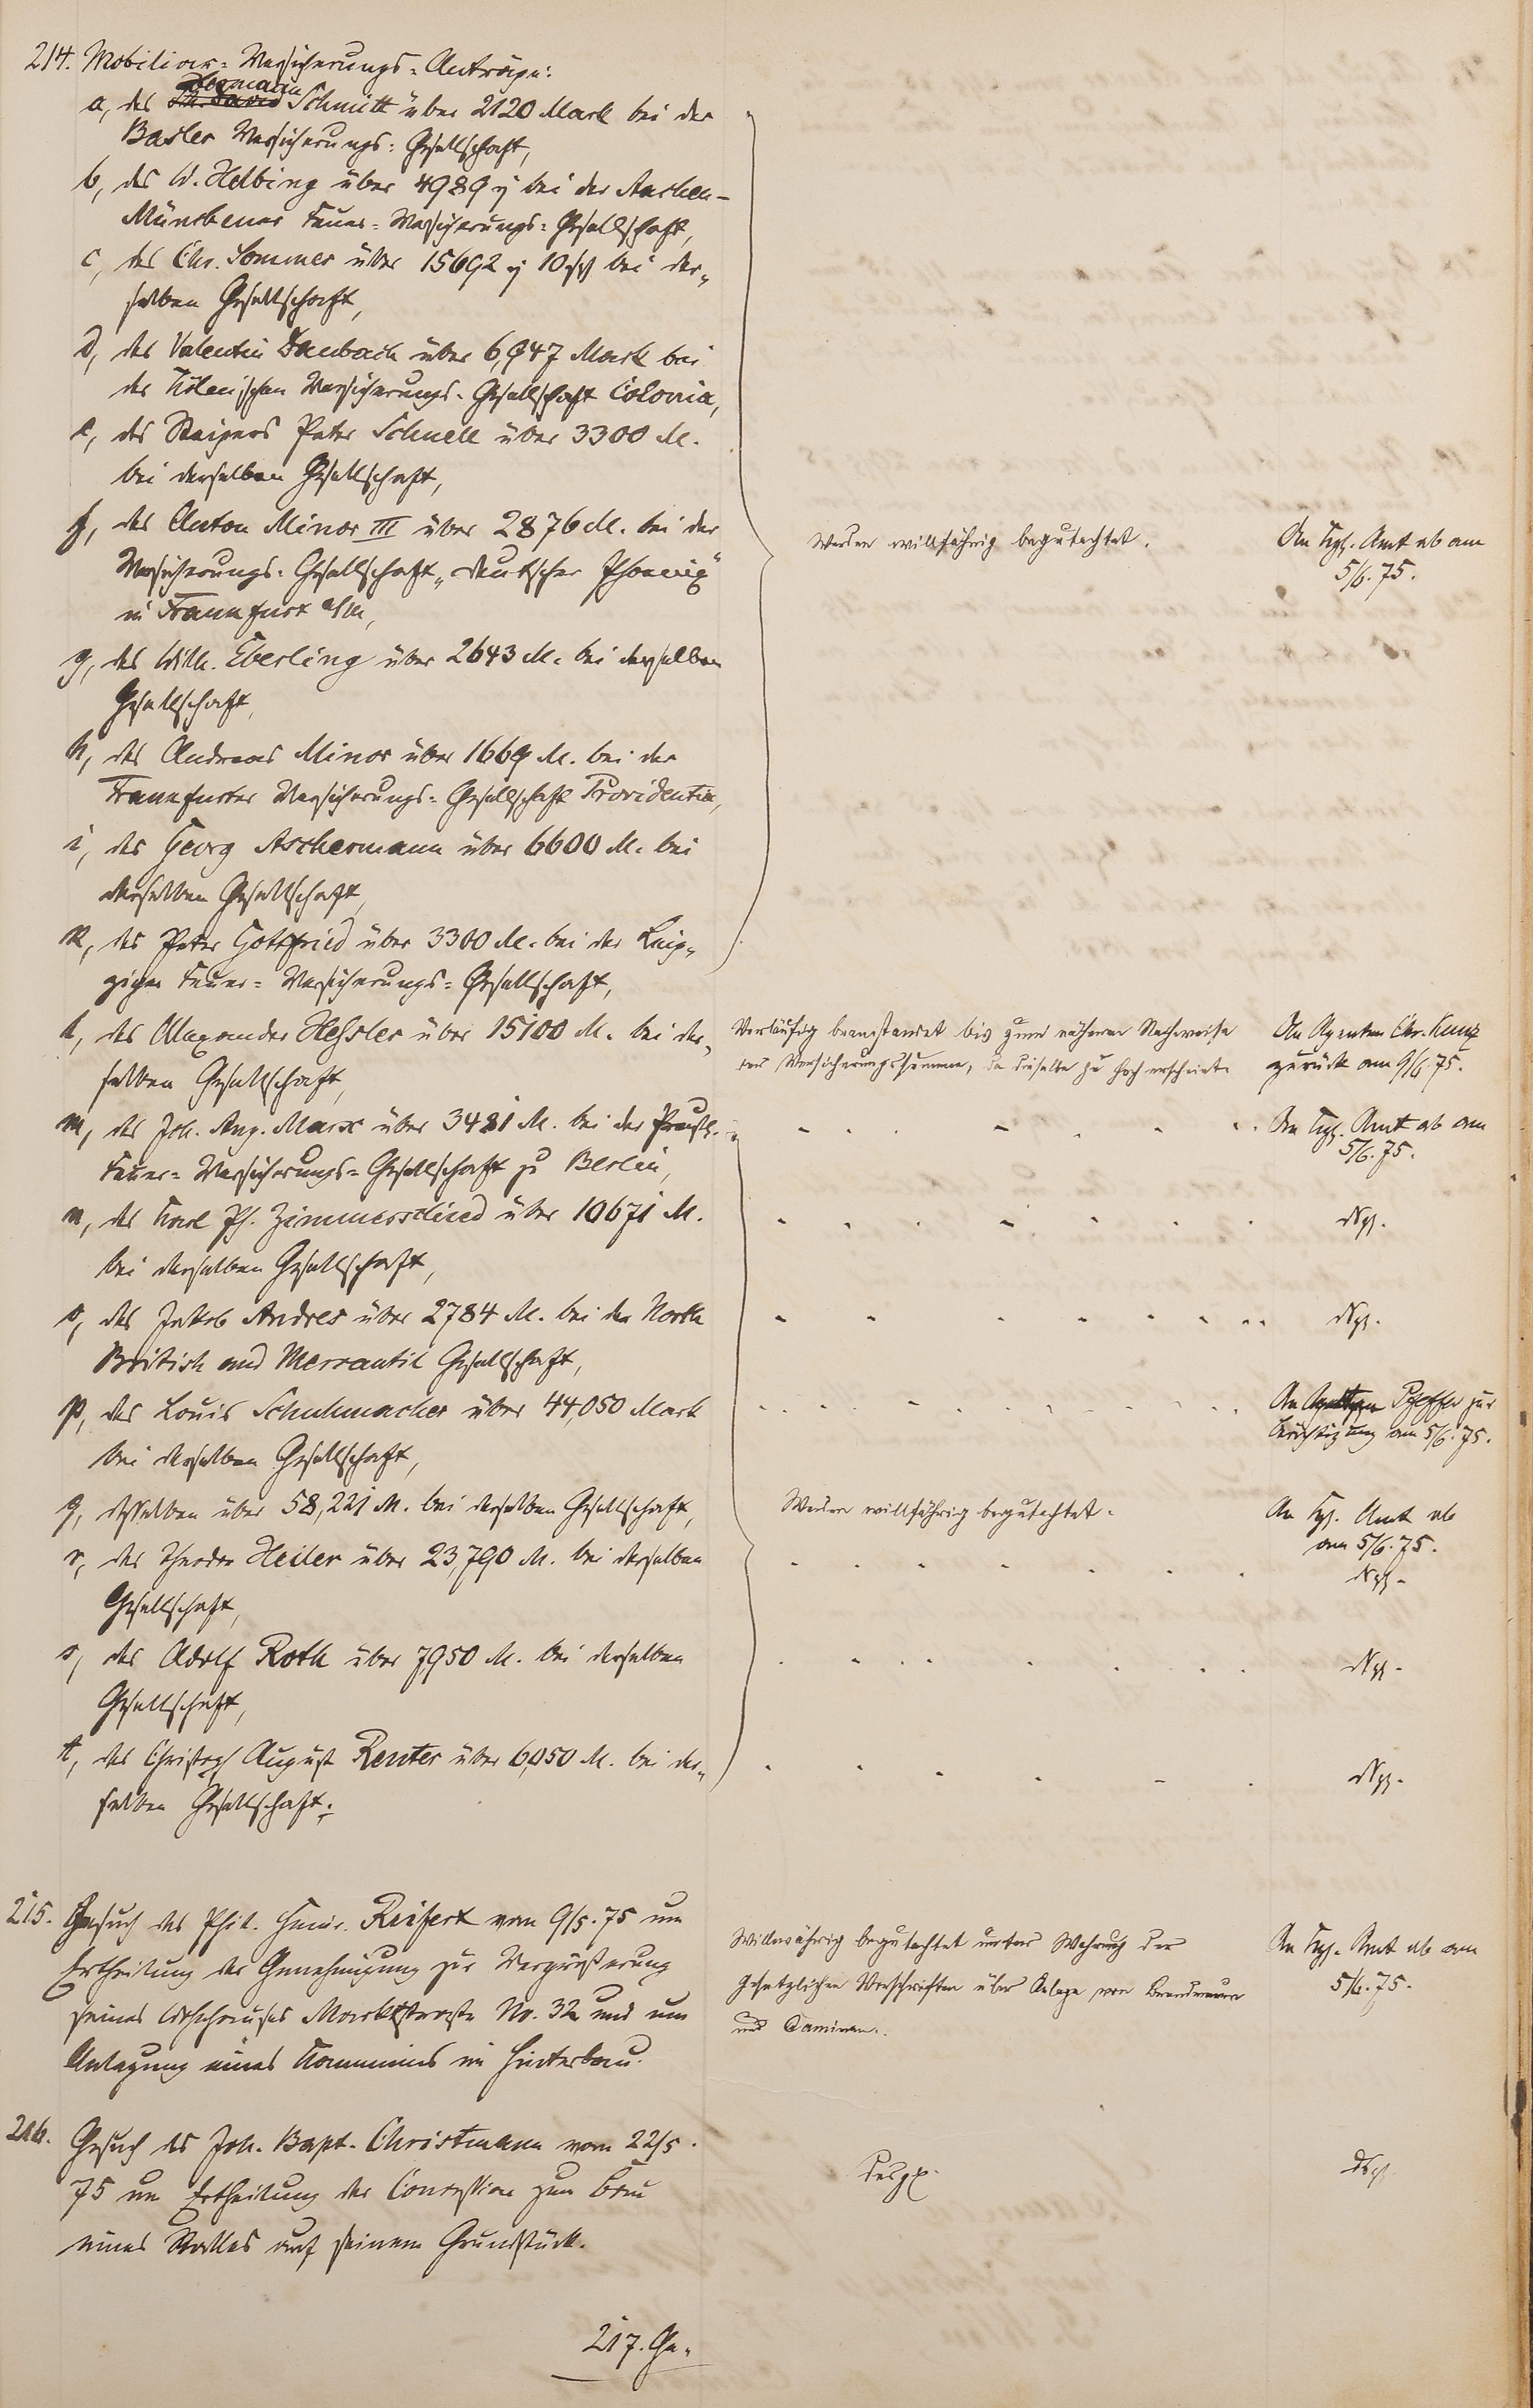 214. Mobiliar-Versicherungs-Anträge:
a, des Hermann Schmitt über 2120 Mark bei der
Basler Versicherungs-Gesellschaft,
b, des W. Helbing über 4989 M bei der Aachen-
Münchener Feuer-Versicherungs-Gesellschaft,
c, des Chr. Sommer über 15692 M 10 Pf bei der-
selben Gesellschaft,
d, des Valentin Daubach über 6,947 Mark bei
der Kölnischen Versicherungs-Gesellschaft Colonia,
e, des Steigers Peter Schnell über 3300 M.
bei derselben Gesellschaft,
f, des Anton Minor III über 2876 M. bei der
Versicherungs-Gesellschaft "deutscher Phoenix"
in Frankfurt a/M,
g, des Wilh. Eberling über 2643 M. bei derselben
Gesellschaft,
h, des Andreas Minor über 1669 M. bei der
Frankfurter Versicherungs-Gesellschaft Providentia,
i, des Georg Aschermann über 6600 M. bei
derselben Gesellschaft,
k, des Peter Gottfried über 3300 M. bei der Leip-
ziger Feuer-Versicherungs-Gesellschaft,
Werden willfährig begutachtet.
An Kgl. Amt ab am
5/6. 75.
l, des Alexander Hessler über 15100 M. bei der-
selben Gesellschaft,
Vorläufig beanstandet bis zum näheren Nachweise
der Versicherungssumme, da dieselbe zu hoch erscheint.
An Agenten Chr. Kunz
zurück am 9/6 75.
m, des Joh. Aug. Marx über 3481 M. bei der Preuß.
Feuer-Versicherungs-Gesellschaft zu Berlin,
An Kgl. Amt ab am
5/6. 75.
n, des Karl Ph. Zimmerschied über 10671 M.
bei derselben Gesellschaft,
Dsgl.
o, des Jakob Andres über 2784 M. bei der North
British and Mercantil Gesellschaft,
Dsgl.
p, des Louis Schuhmacher über 44,050 Mark
bei derselben Gesellschaft,
An Agenten Pfeffer zur
Berichtigung am 5/6. 75.
q, desselben über 58,221 M. bei derselben Gesellschaft,
Werden willfährig begutachtet.
An Kgl. Amt ab
am 5/6. 75.
r, des Theodor Heiler über 23,790 M. bei derselben
Gesellschaft,
Dsgl.
s, des Adolf Roth über 7,950 M. bei derselben
Gesellschaft,
Dsgl.
t, des Christoph August Reuter über 6,050 M. bei der-
selben Gesellschaft;
Dsgl.
215. Gesuch des Phil. Heinr. Reifert vom 9/5. 75 um
Ertheilung der Genehmigung zur Vergrößerung
seines Wohnhauses Marktstraße No. 32 und um
Anlegung eines Kammins im Hinterbau.
Willfährig begutachtet unter Wahrung der
gesetzlichen Vorschriften über Anlage von Brandmauern
und Caminen.
An Kgl. Amt ab am
5/6. 75.
216. Gesuch des Joh. Bapt. Christmann vom 22/5.
75 um Ertheilung der Concession zum Bau
eines Stalles auf seinem Grundstück.
Desgl.
Dsgl.
217. Ge-